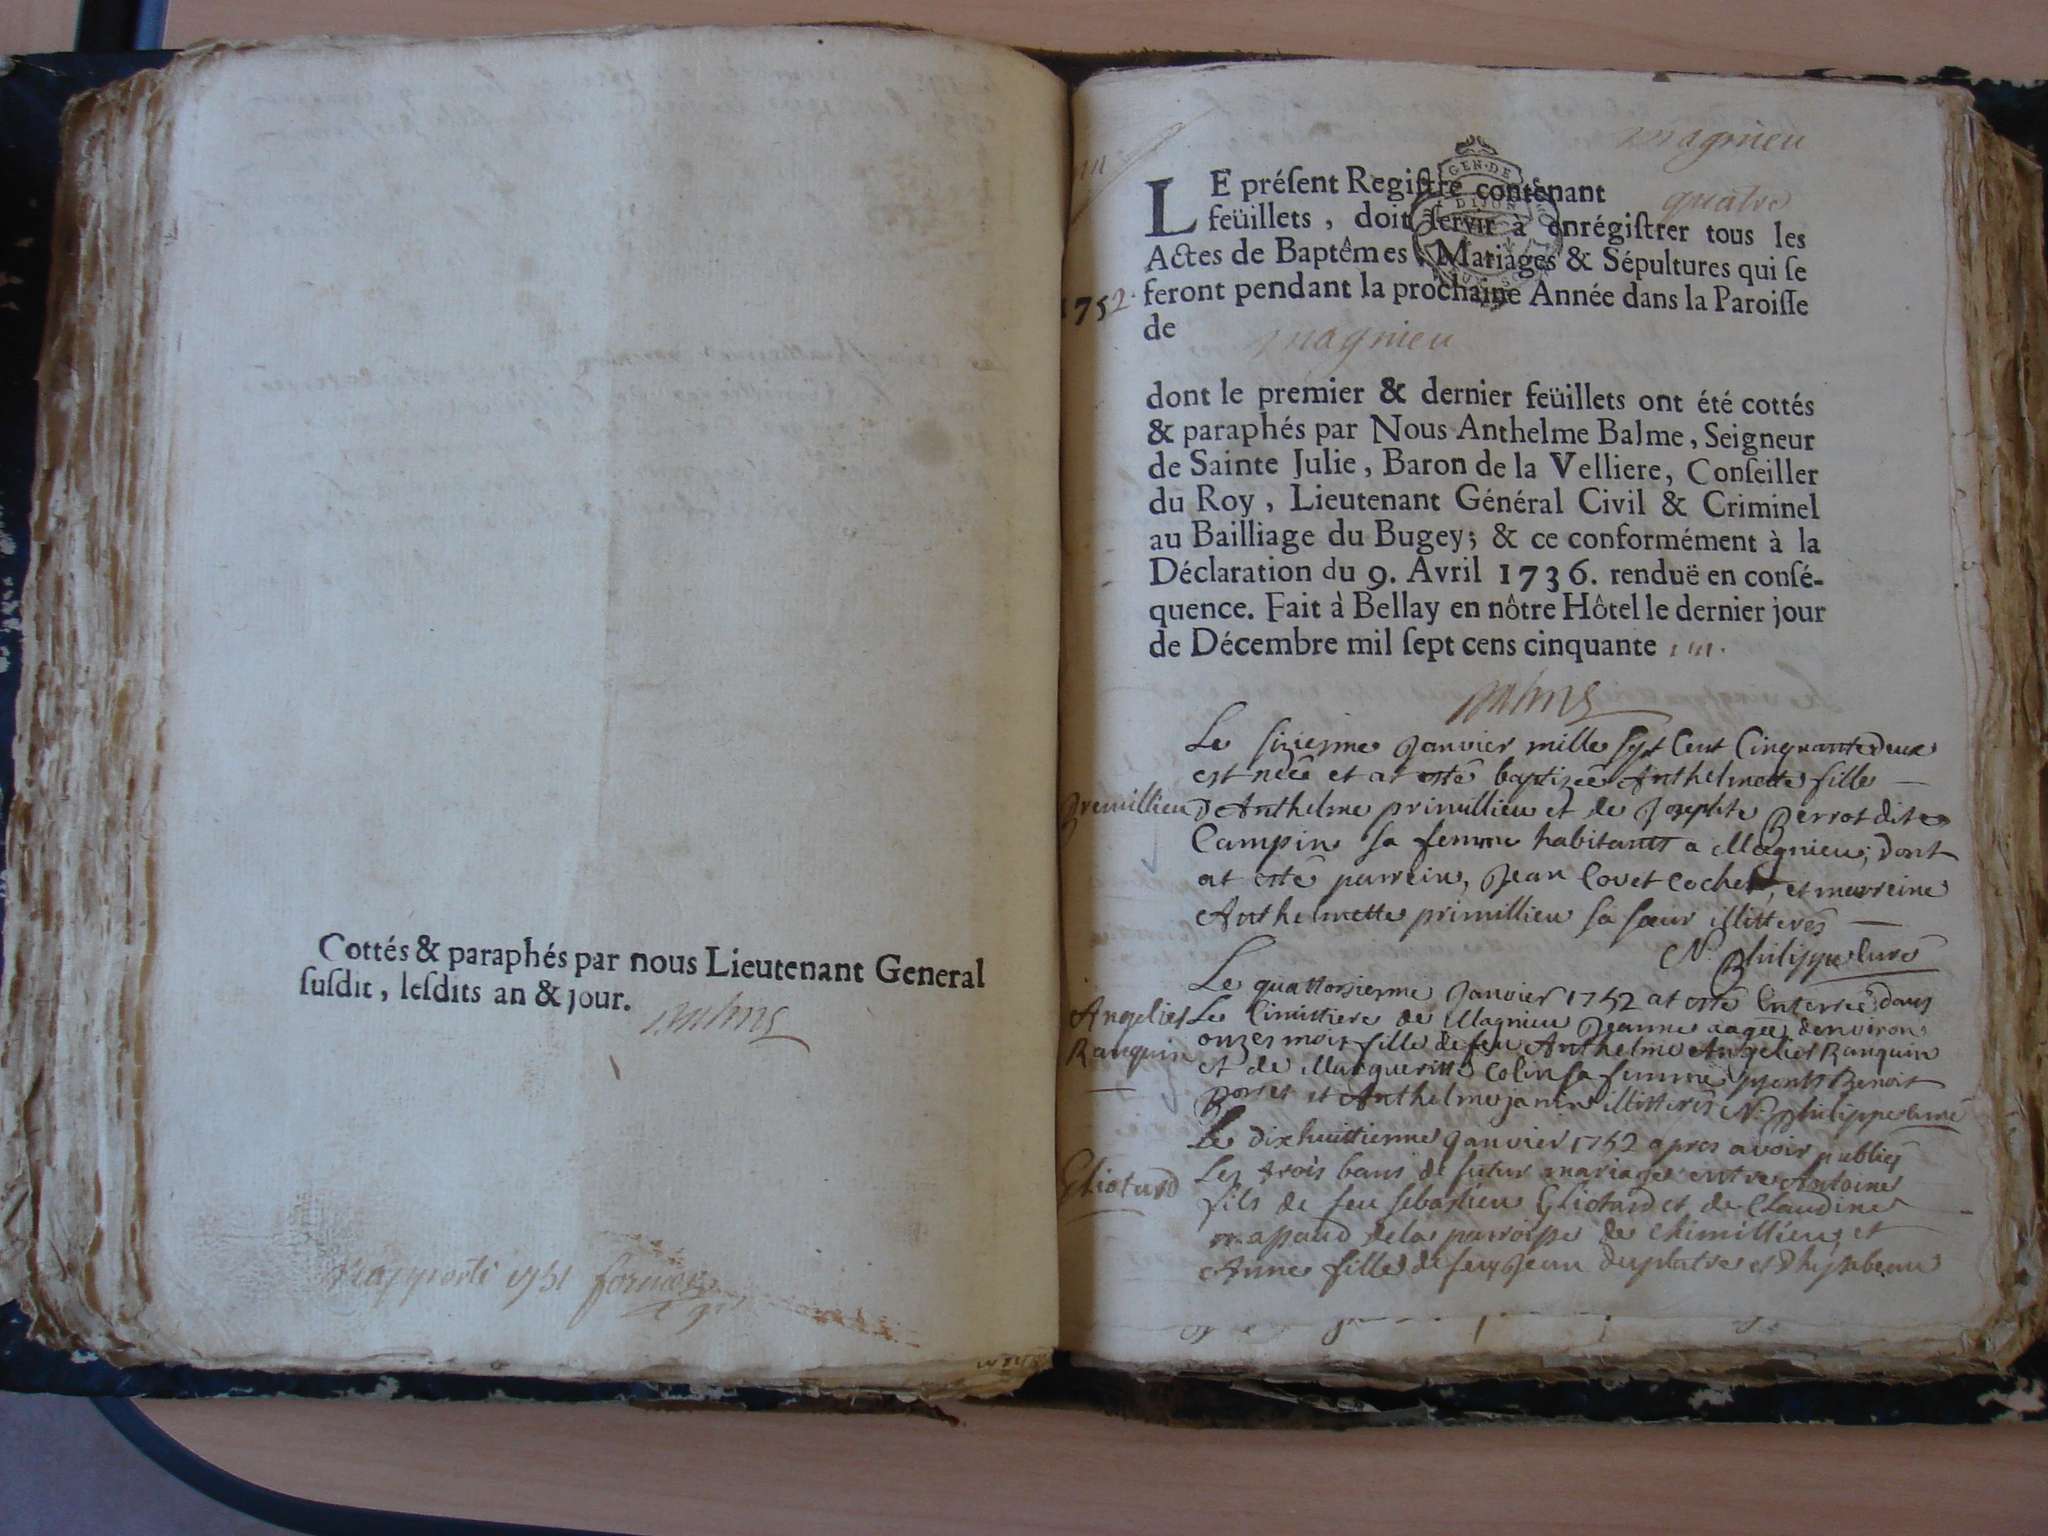 Cottés & paraphés par nous Lieutenant General
susdit, lesdits an & jour.
Balme
Rapporté 1751
Magnieu
GEN·DE
DIJON
LE présent Registre contenant quatre
feüillets, doit servir à enrégistrer tous les
Actes de Baptêmes, Mariages & Sépultures qui se
1752. feront pendant la prochaine Année dans la Paroisse
de Magnieu
dont le premier & dernier feüillets ont été cottés
& paraphés par Nous Anthelme Balme, Seigneur
de Sainte Julie, Baron de la Velliere, Conseiller
du Roy, Lieutenant Général Civil & Criminel
au Bailliage du Bugey; & ce conformément à la
Déclaration du 9. Avril 1736. renduë en consé-
quence. Fait à Bellay en nôtre Hôtel le dernier jour
de Décembre mil sept cens cinquante
Balme
Le sizieme Janvier mille sept Cent Cinquante deux
est neée et at esté baptizeé Anthelmette fille
Premillieu
D'Anthelme primillieu et de Josephte Perrot dite
Campin sa femme habitants a Magnieu, dont
at esté parrein, Jean Covet Cochet, et marreine
Anthelmette primillieu sa sœur illitterés
N. Philippe Curé
Le quattorsieme Janvier 1752 at esté Enterreé dans
Angelier
Ranquin
Le Cimittiere de Magnieu Jeanne aageé denviron
onzes mois fille de feu Anthelme Angelier Ranquin
et de Margueritte Colin sa femme, psents Benoit
Borset et Anthelme Janin illitterés N. Philippe curé
Le dixhuittieme Janvier 1752 apres avoir publiés
Gliotard
Les trois bans de futur mariage entre Antoine
fils de feu sebastien Gliotard et de Claudine
mapaud de la parroisse de Chimillieu, et
Anne fille de feu Jean Duplatre et d'hysabeau